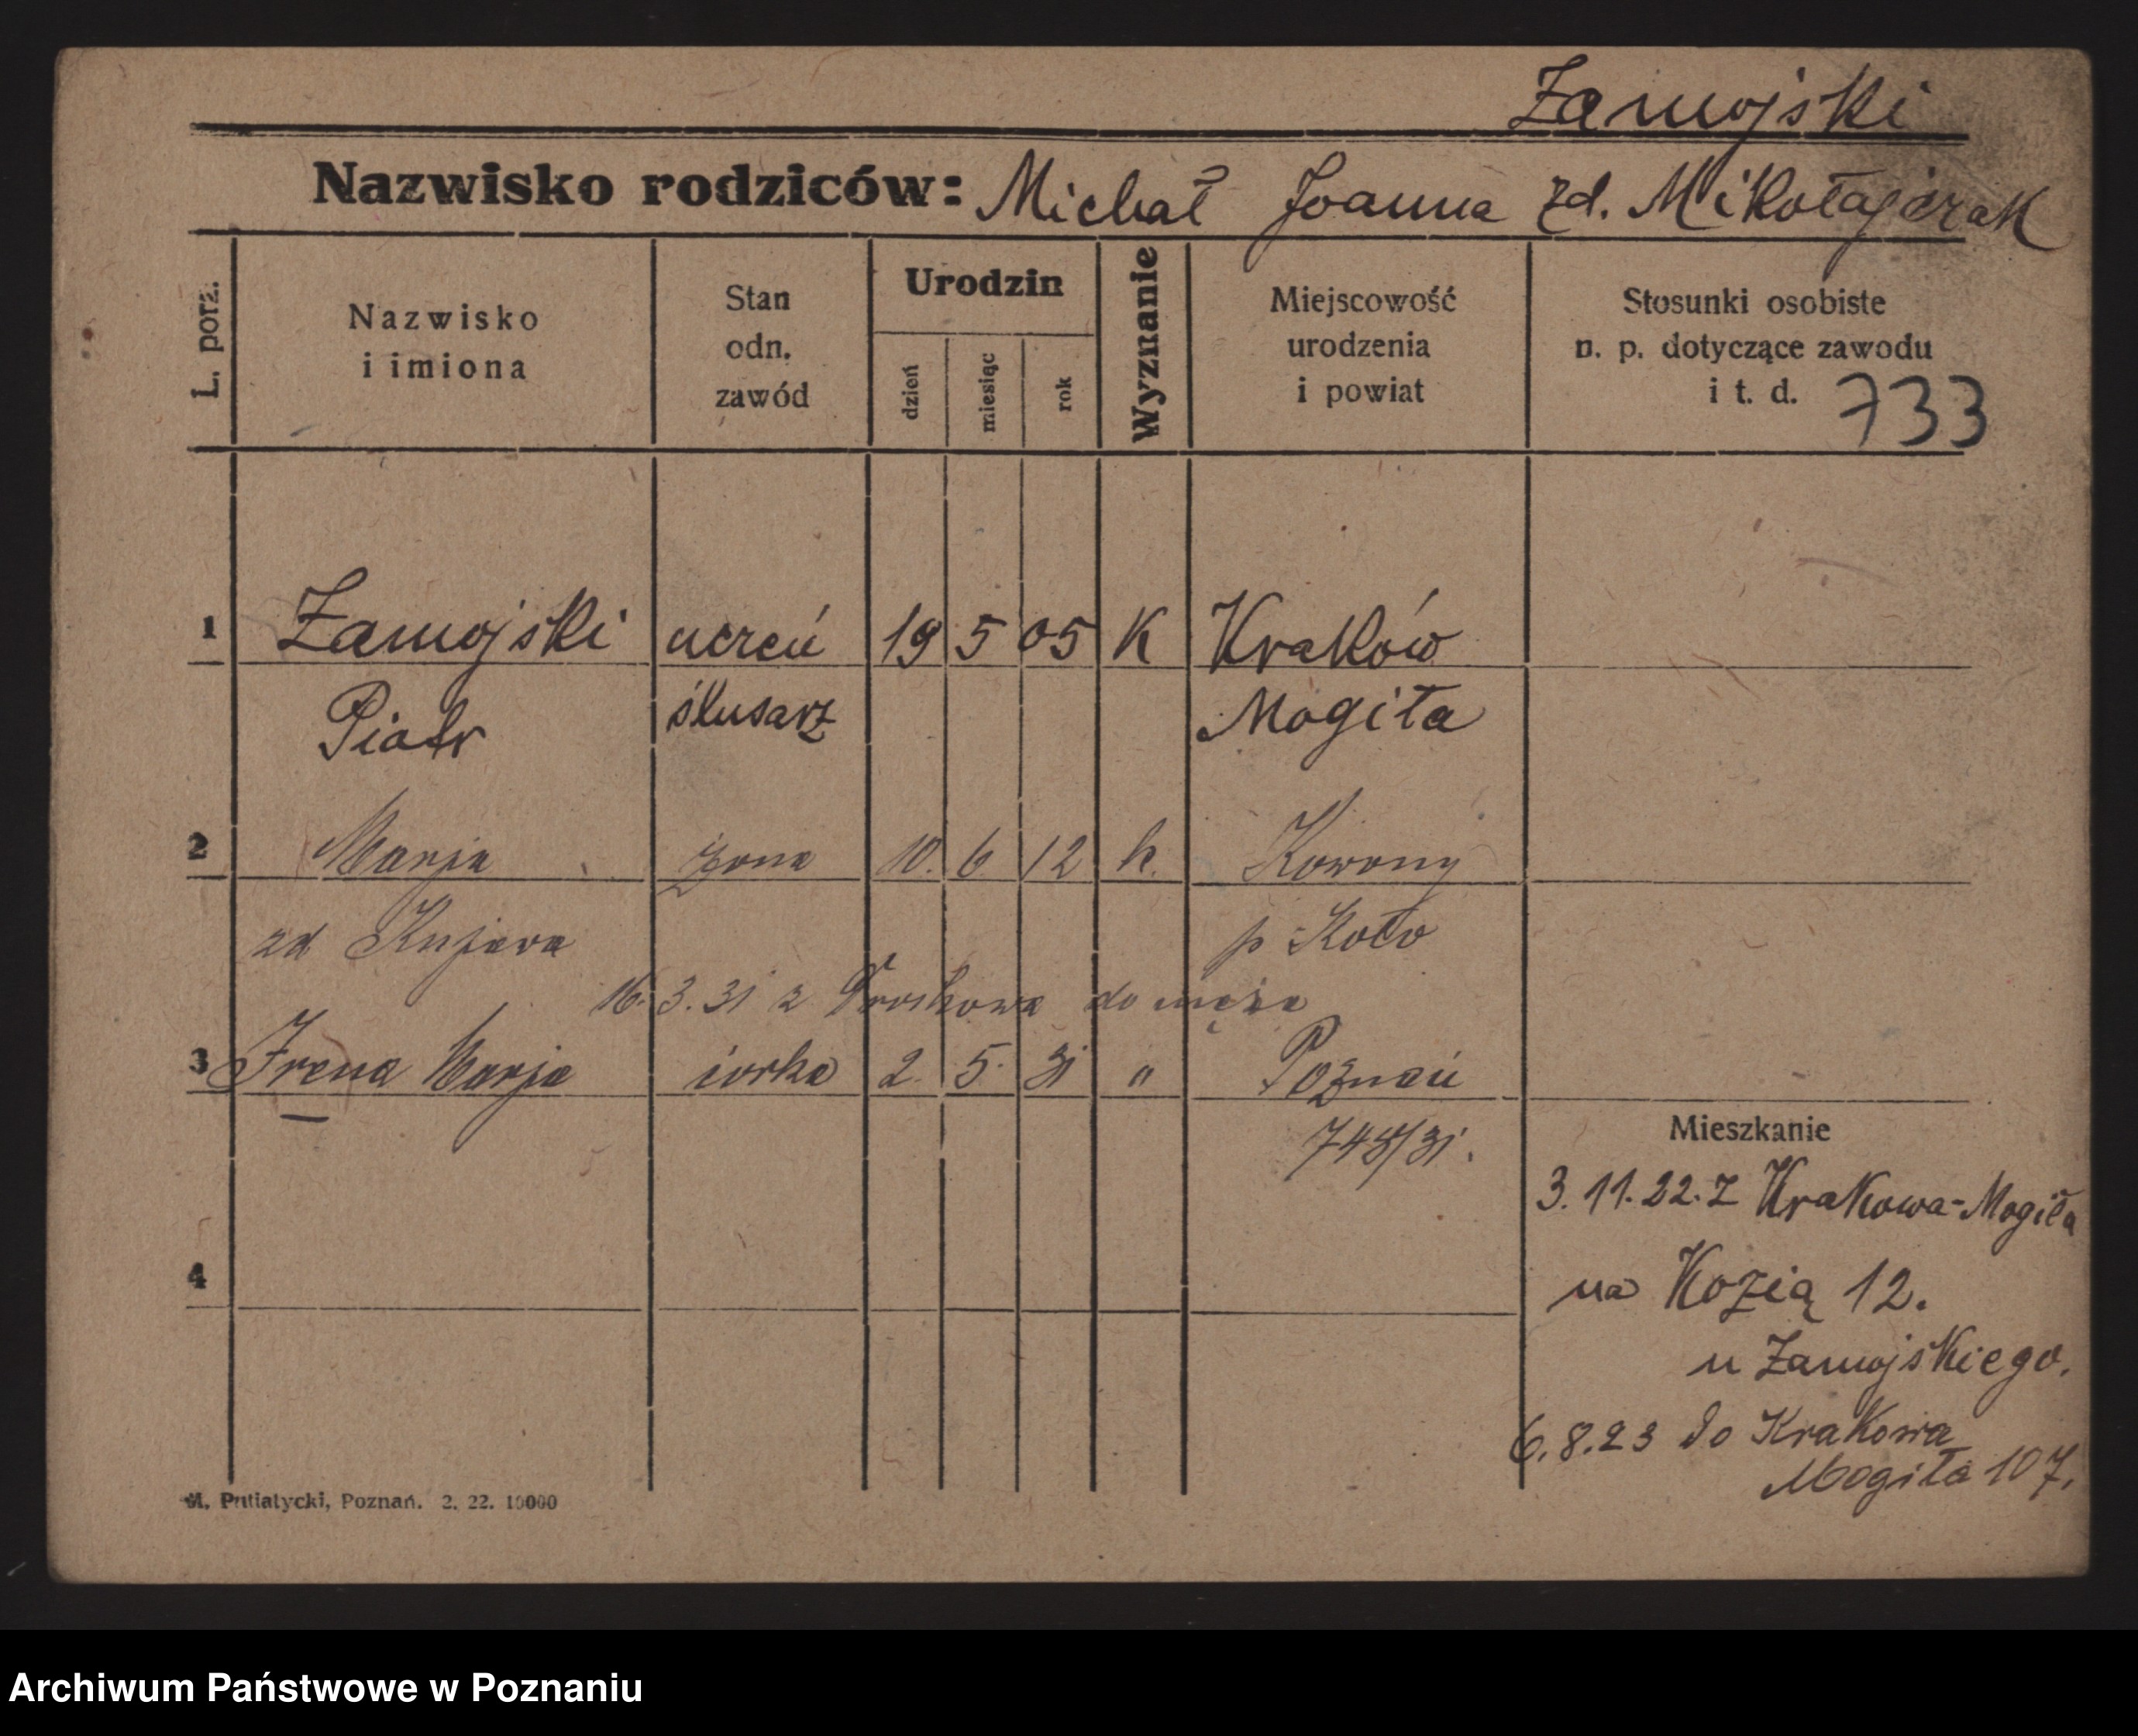 Zamojski
Nazwisko rodziców: Michał Joanna zd. Mikołajczak
L. porz.
Nazwisko i imiona
Stan odn. zawód
Urodzin
dzień miesiąc rok
Wyznanie
Miejscowość urodzenia i powiat
Stosunki osobiste
n. p. dotyczące zawodu
i t. d. 733
1 Zamojski uczeń 19 5 05 K Kraków
Piotr ślusarz Mogiła
2 Marja żona 10. 6. 12 k. Kowony
zd Kujawa p Koło
16. 3. 31 z do męża
3 Irena Marja córka 2. 5. 31 " Poznań
748/31.
Mieszkanie
3. 11. 22. z Krakowa-Mogiła
4
na Kozią 12.
u Zamojskiego.
6. 8. 23 do Krakowa
Mogiła 107.
M. Putiatycki, Poznań. 2. 22. 10000
Archiwum Państwowe w Poznaniu